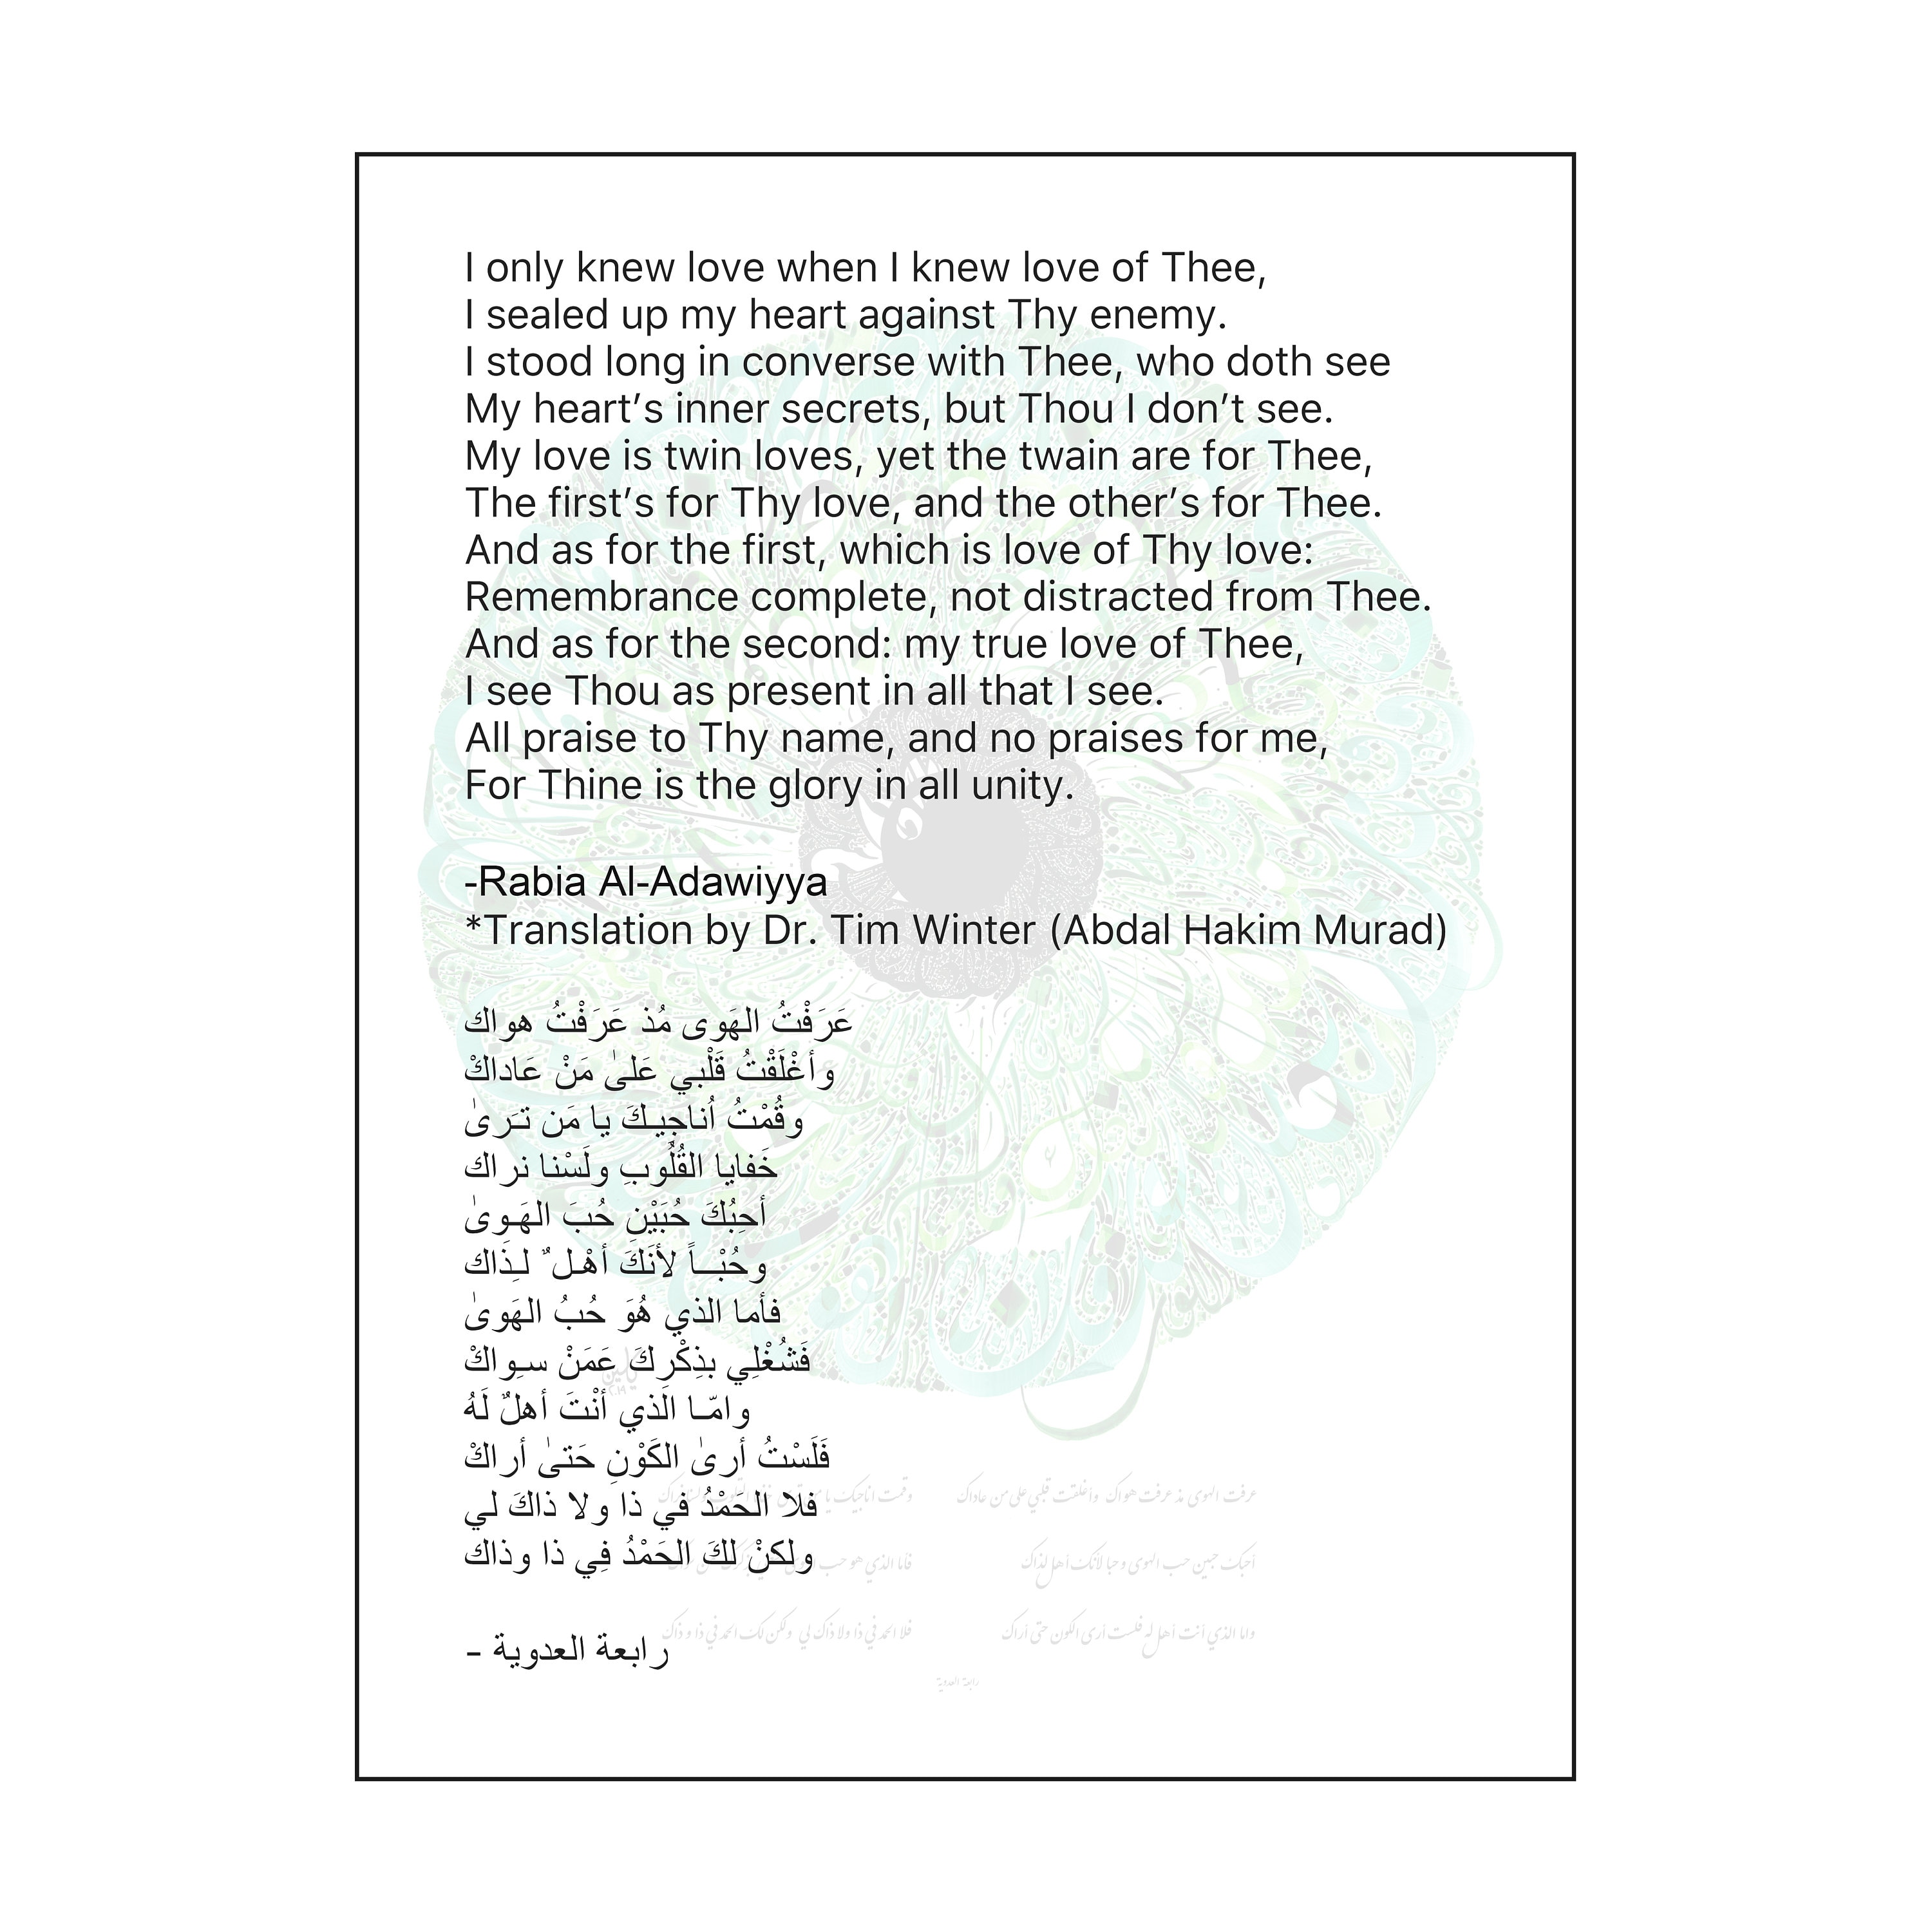 I only knew love when I knew love of Thee,
I sealed up my heart against Thy enemy.
I stood long in converse with Thee, who doth see
My heart’s inner secrets, but Thou I don’t see.
My love is twin loves, yet the twain are for Thee,
The first’s for Thy love, and the other’s for Thee.
And as for the first, which is love of Thy love:
Remembrance complete, not distracted from Thee.
And as for the second: my true love of Thee,
I see Thou as present in all that I see.
All praise to Thy name, and no praises for me,
For Thine is the glory in all unity.
-Rabia Al-Adawiyya
*Translation by Dr. Tim Winter (Abdal Hakim Murad)
عَرَفْتُ الهَوى مُذ عَرَفْتُ هواك
وأغْلَقْتُ قَلْبي عَلىٰ مَنْ عَاداكْ
وقُمْتُ اُناجِيـكَ يا مَن تـَرىٰ
خَفايا القُلُوبِ ولَسْنا نراك
أحِبُكَ حُبَيْنِ حُبَ الهَـوىٰ
وحُبْــاً لأنَكَ أهْـل ٌ لـِذَاك
فأما الذي هُوَ حُبُ الهَوىٰ
فَشُغْلِي بذِكْرِكَ عَمَنْ سـِواكْ
وامّـا الَذي أنْتَ أهلٌ لَهُ
فَلَسْتُ أرىٰ الكَوْنِ حَتىٰ أراكْ
فلا الحَمْدُ في ذا ولا ذاكَ لي
ولكنْ لكَ الحَمْدُ فِي ذا وذاك
رابعة العدوية -
عرفت الهوى مذ عرفت هواك وأغلقت قلبي على من عاداك
أحبك حبين حب الهوى وحبا لأنك أهل لذاك
واما الذي أنت أهل له فلست أرى الكون حتى أراك
فلا الحمد في ذا ولا ذاك لي ولكن لك الحمد في ذا وذاك
رابعة العدوية